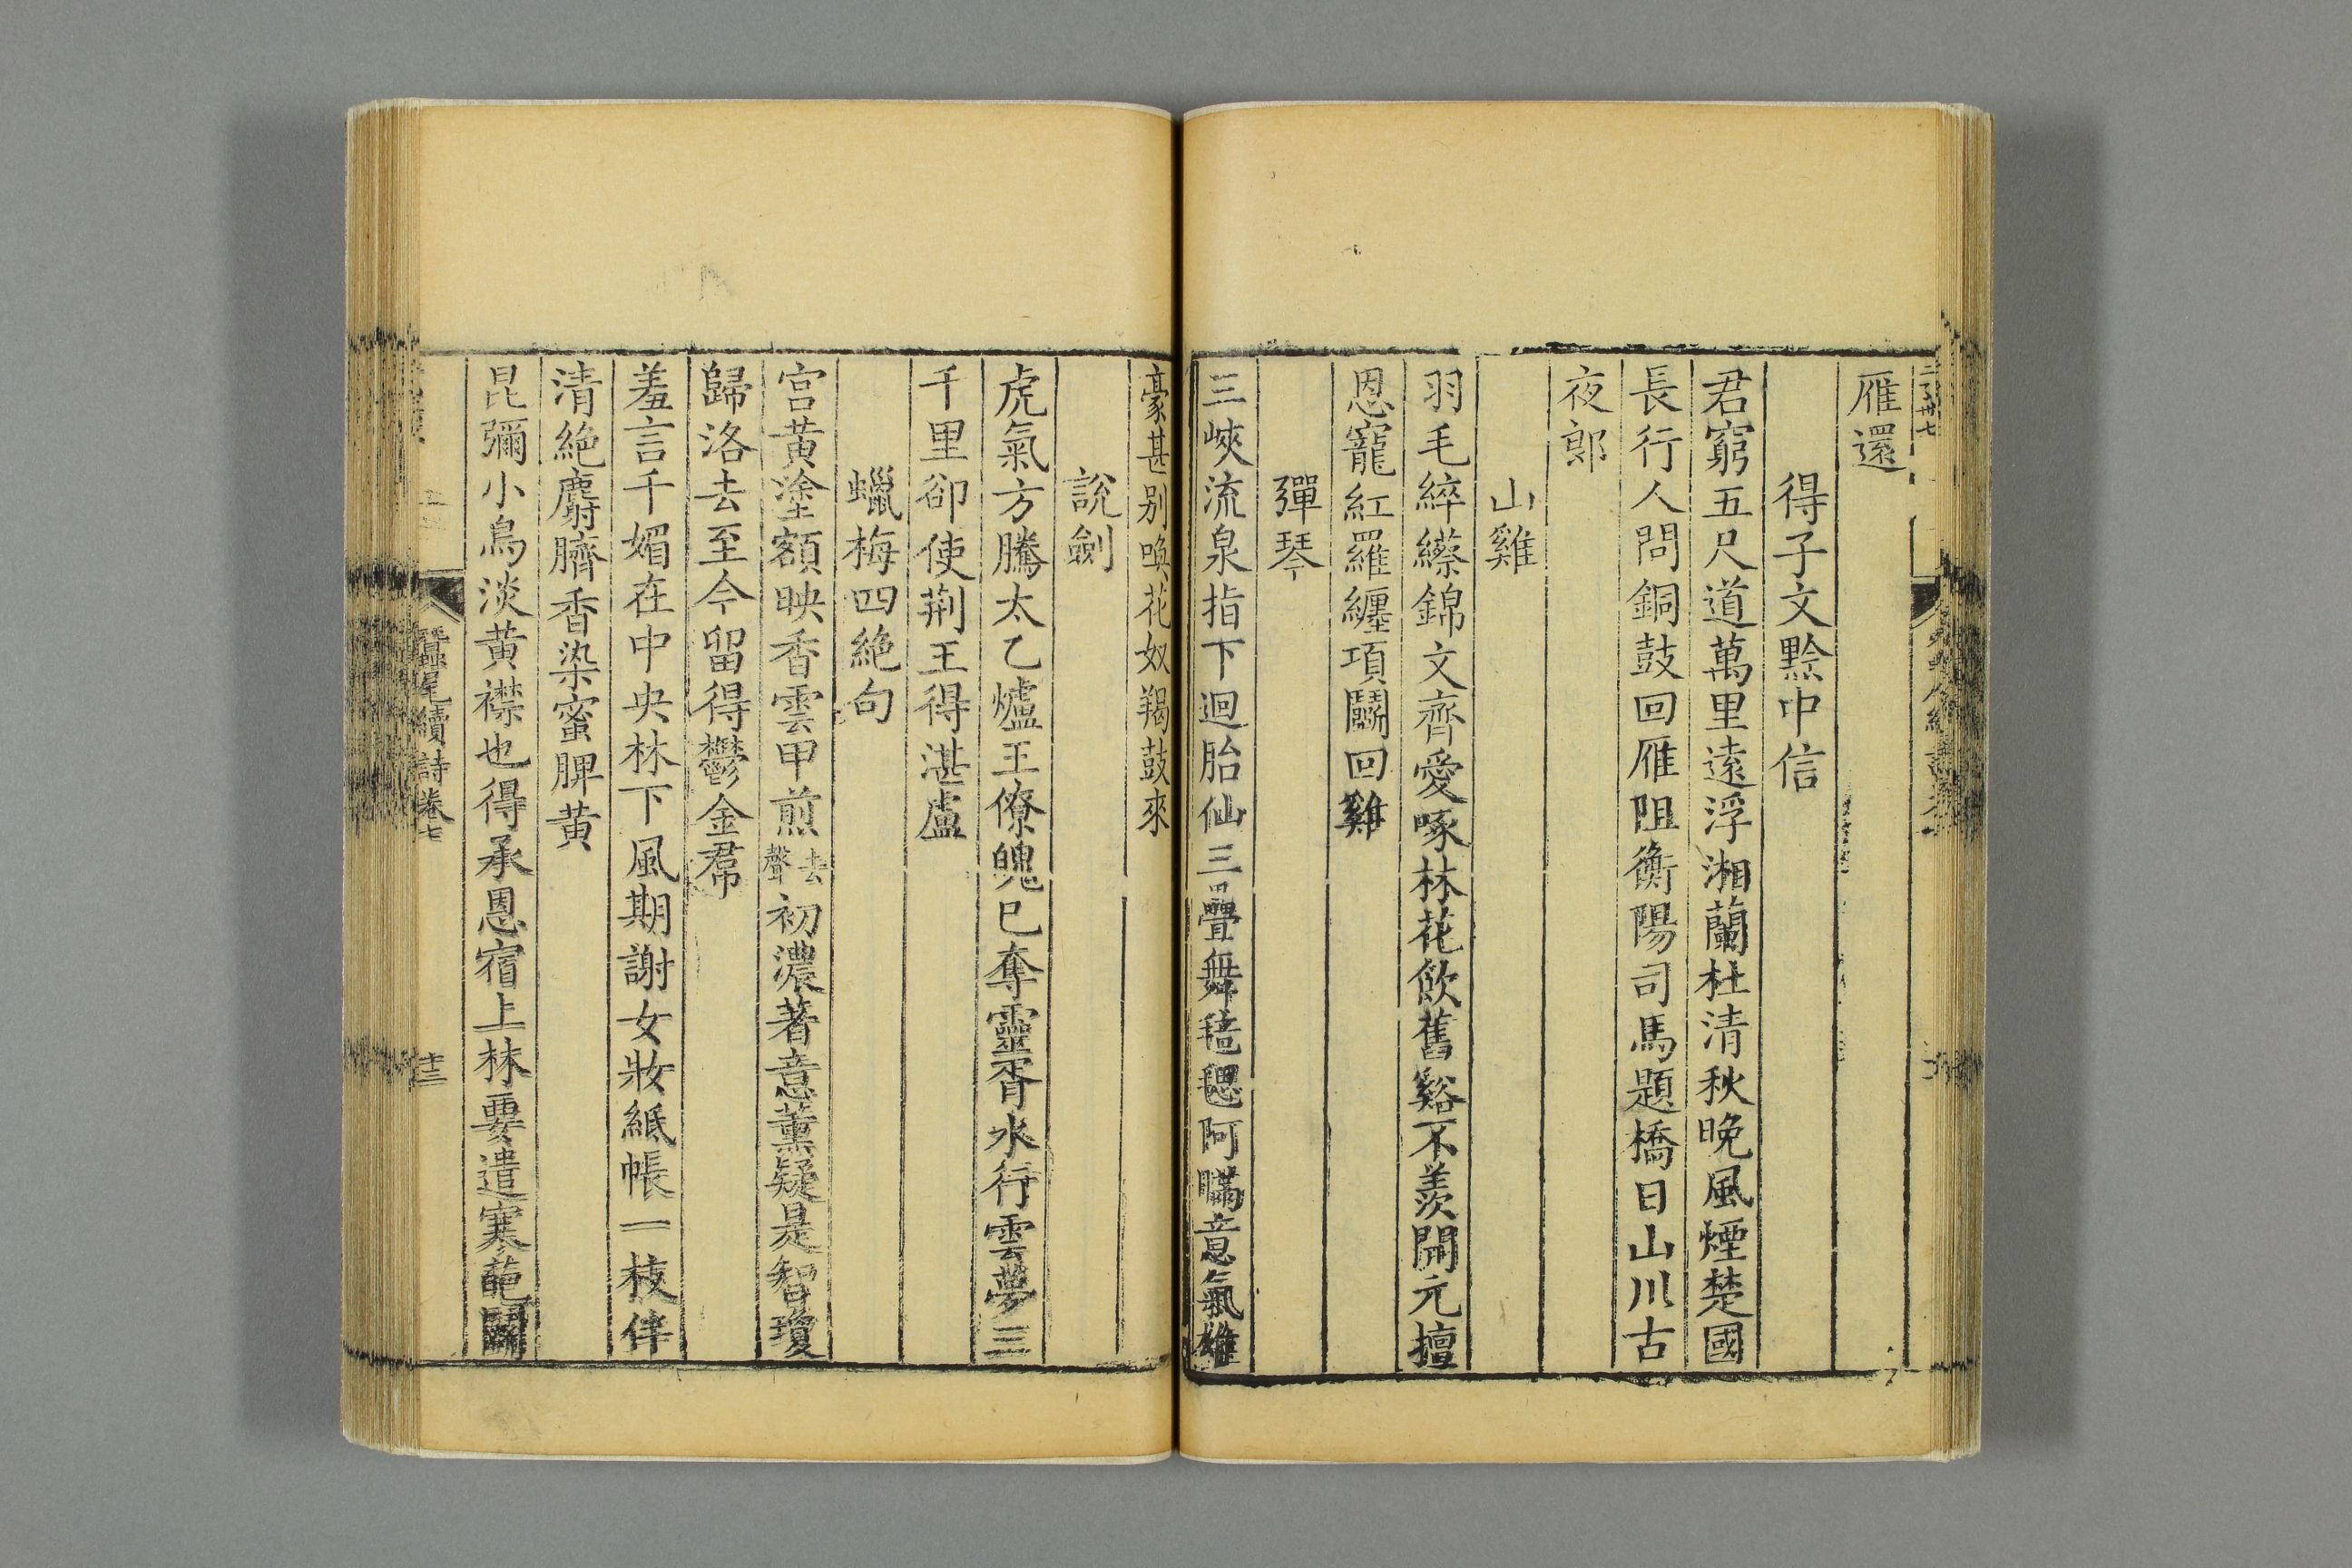 雁還
得子文黔中信
君窮五尺道萬里遠浮湘蘭杜清秋晚風煙楚國
長行人問銅鼓回雁阻衡陽司馬題橋日山川古
夜郎
山雞
羽毛綷䌨錦文齊愛啄林花飲舊谿不羨開元擅
恩寵紅羅纏項鬬回雞
彈琴
三峽流泉指下迴胎仙三疊舞毰毸阿瞞意氣雄
豪甚别喚花奴羯鼓來
說劍
虎氣方騰太乙爐王僚魄已奪靈胥水行雲夢三
千里卻使荆王得湛盧
蠟梅四絶句
宫黄塗額映香雲甲煎去聲初濃著意薰疑是智瓊
歸洛去至今留得鬱金帬
羞言千媚在中央林下風期謝女妝紙帳一枝伴
清絶麝臍香染蜜脾黄
昆彌小鳥淡黄襟也得承恩宿上林要遣寒葩鬬
蠶尾續詩卷七
十三